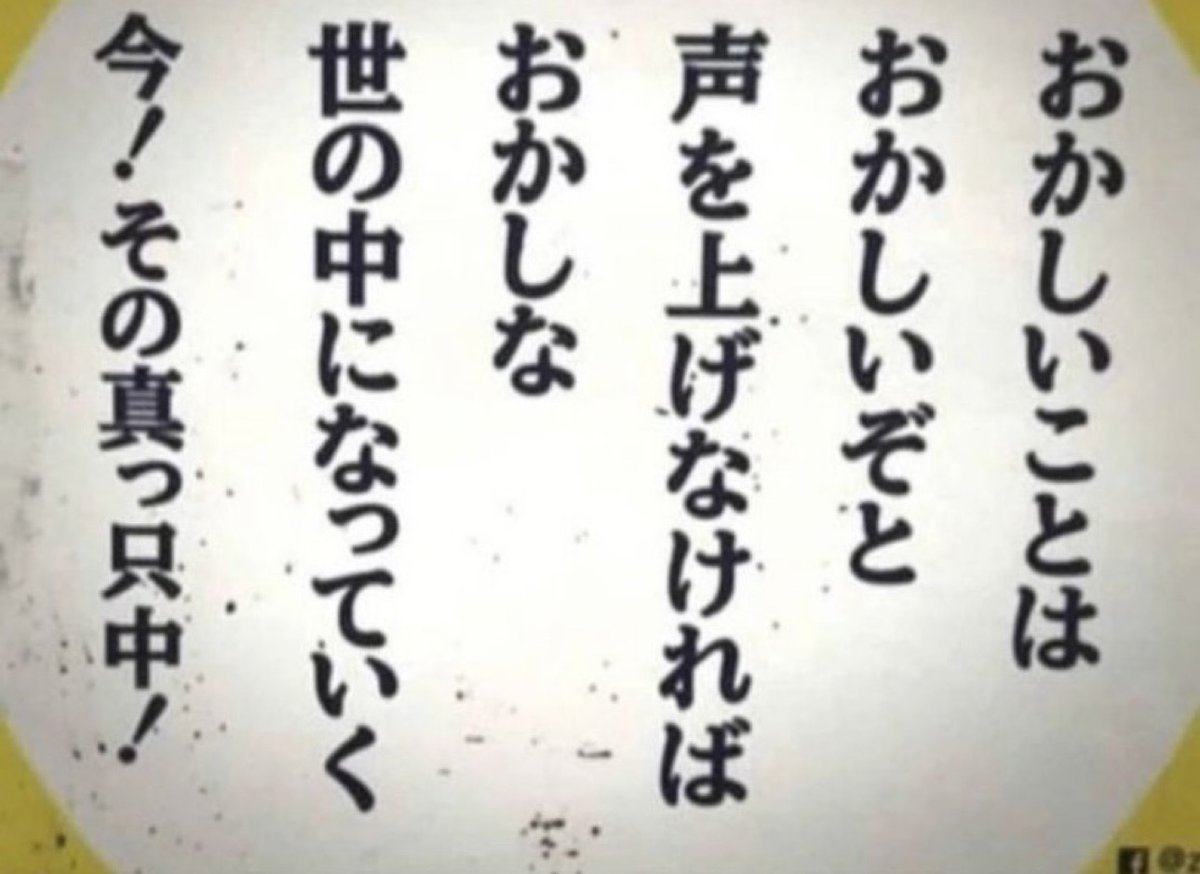 おかしいことは
おかしいぞと
声を上げなければ
おかしな
世の中になっていく
今!その真っ只中!